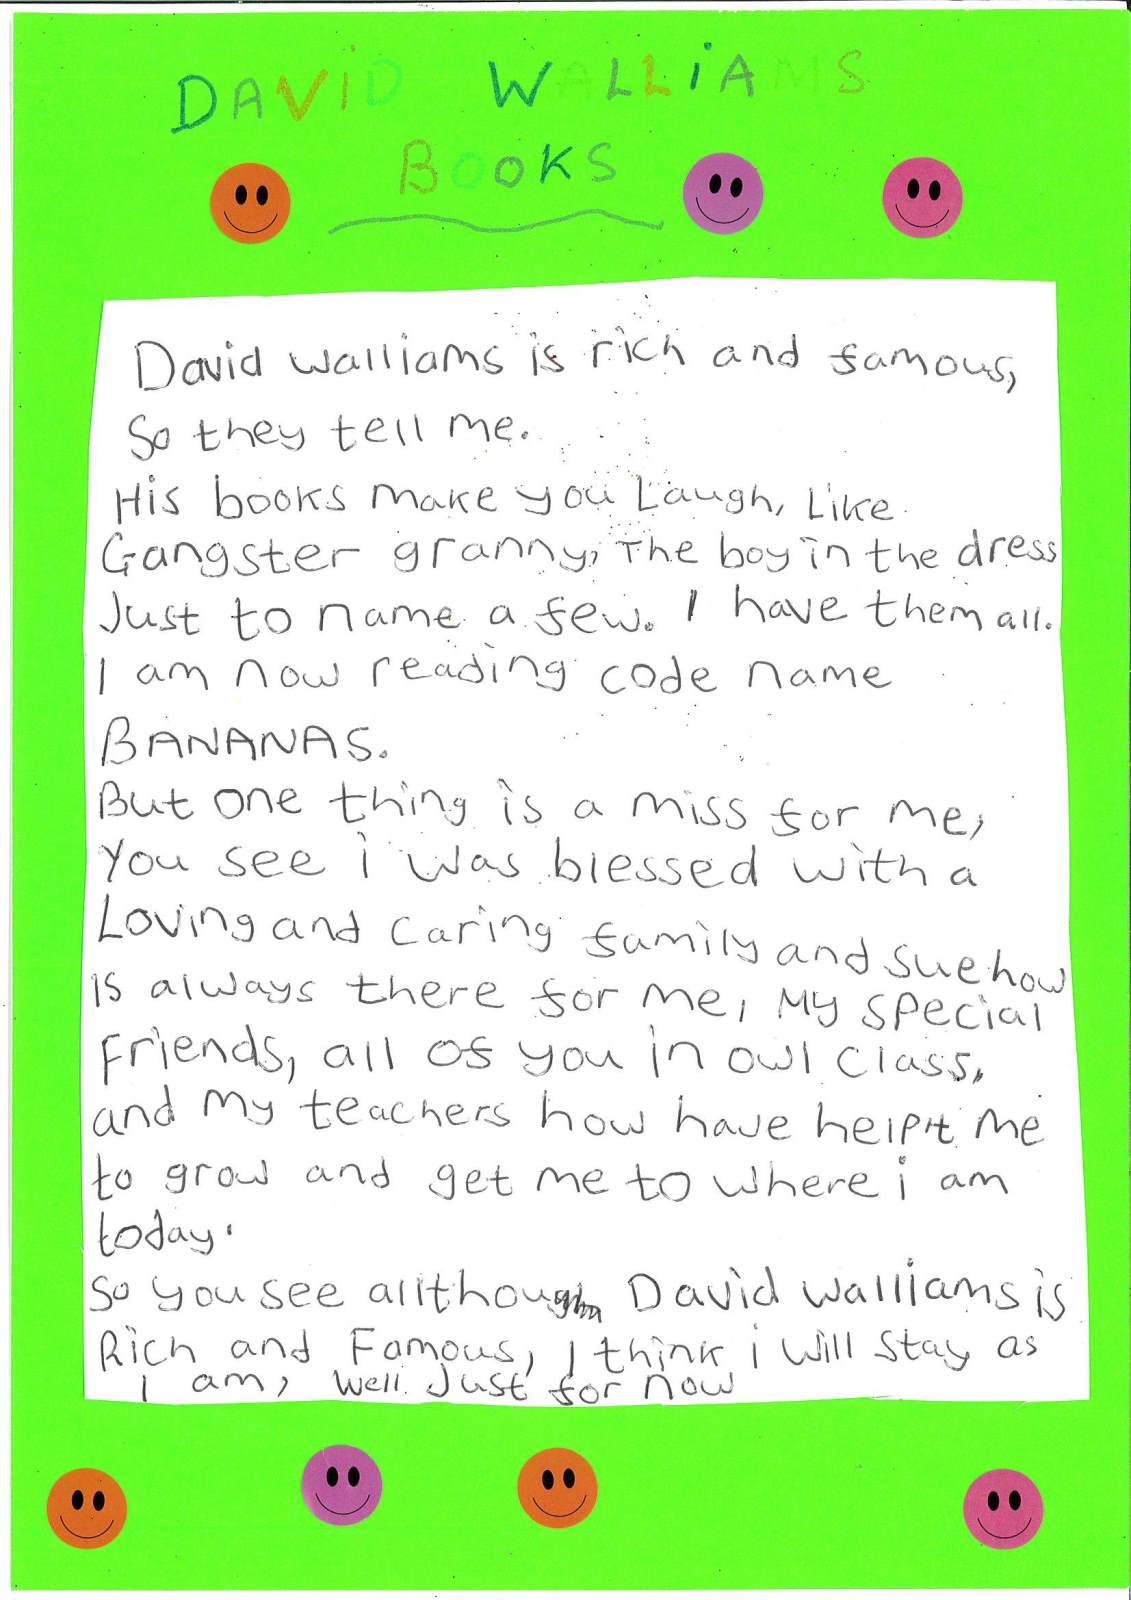 DAViD WALLiAMS
BOOKS
David walliams is rich and famous,
So they tell me.
His books make you Laugh, Like
Gangster granny, The boy in the dress
Just to name a few. I have them all.
I am now reading code name
BANANAS.
But one thing is a miss for me,
You see i was blessed with a
Loving and caring family and sue how
is always there for me, My special
Friends, all of you in owl class,
and my teachers how have helpt me
to grow and get me to where i am
today.
So you see allthough David walliams is
Rich and Famous, I think i will stay as
I am, well Just for now